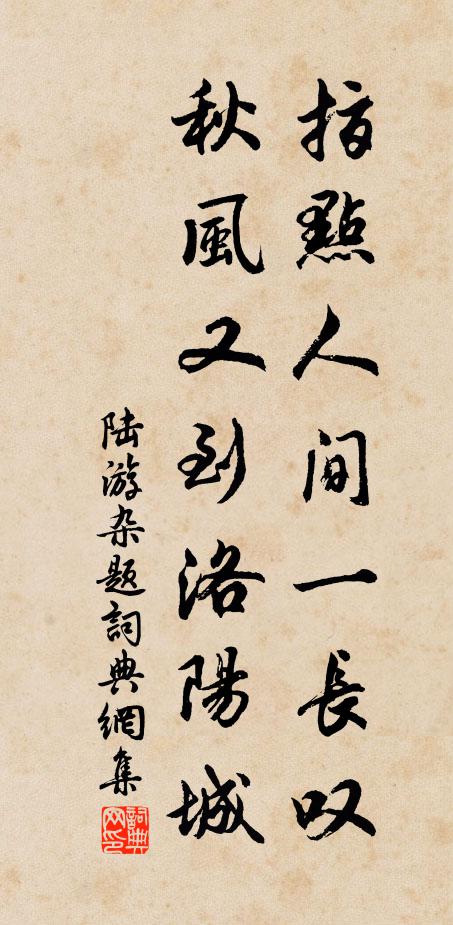 指點人间一長叹
秋風又到洛陽城
陆游杂题詞典網集
詞典网印